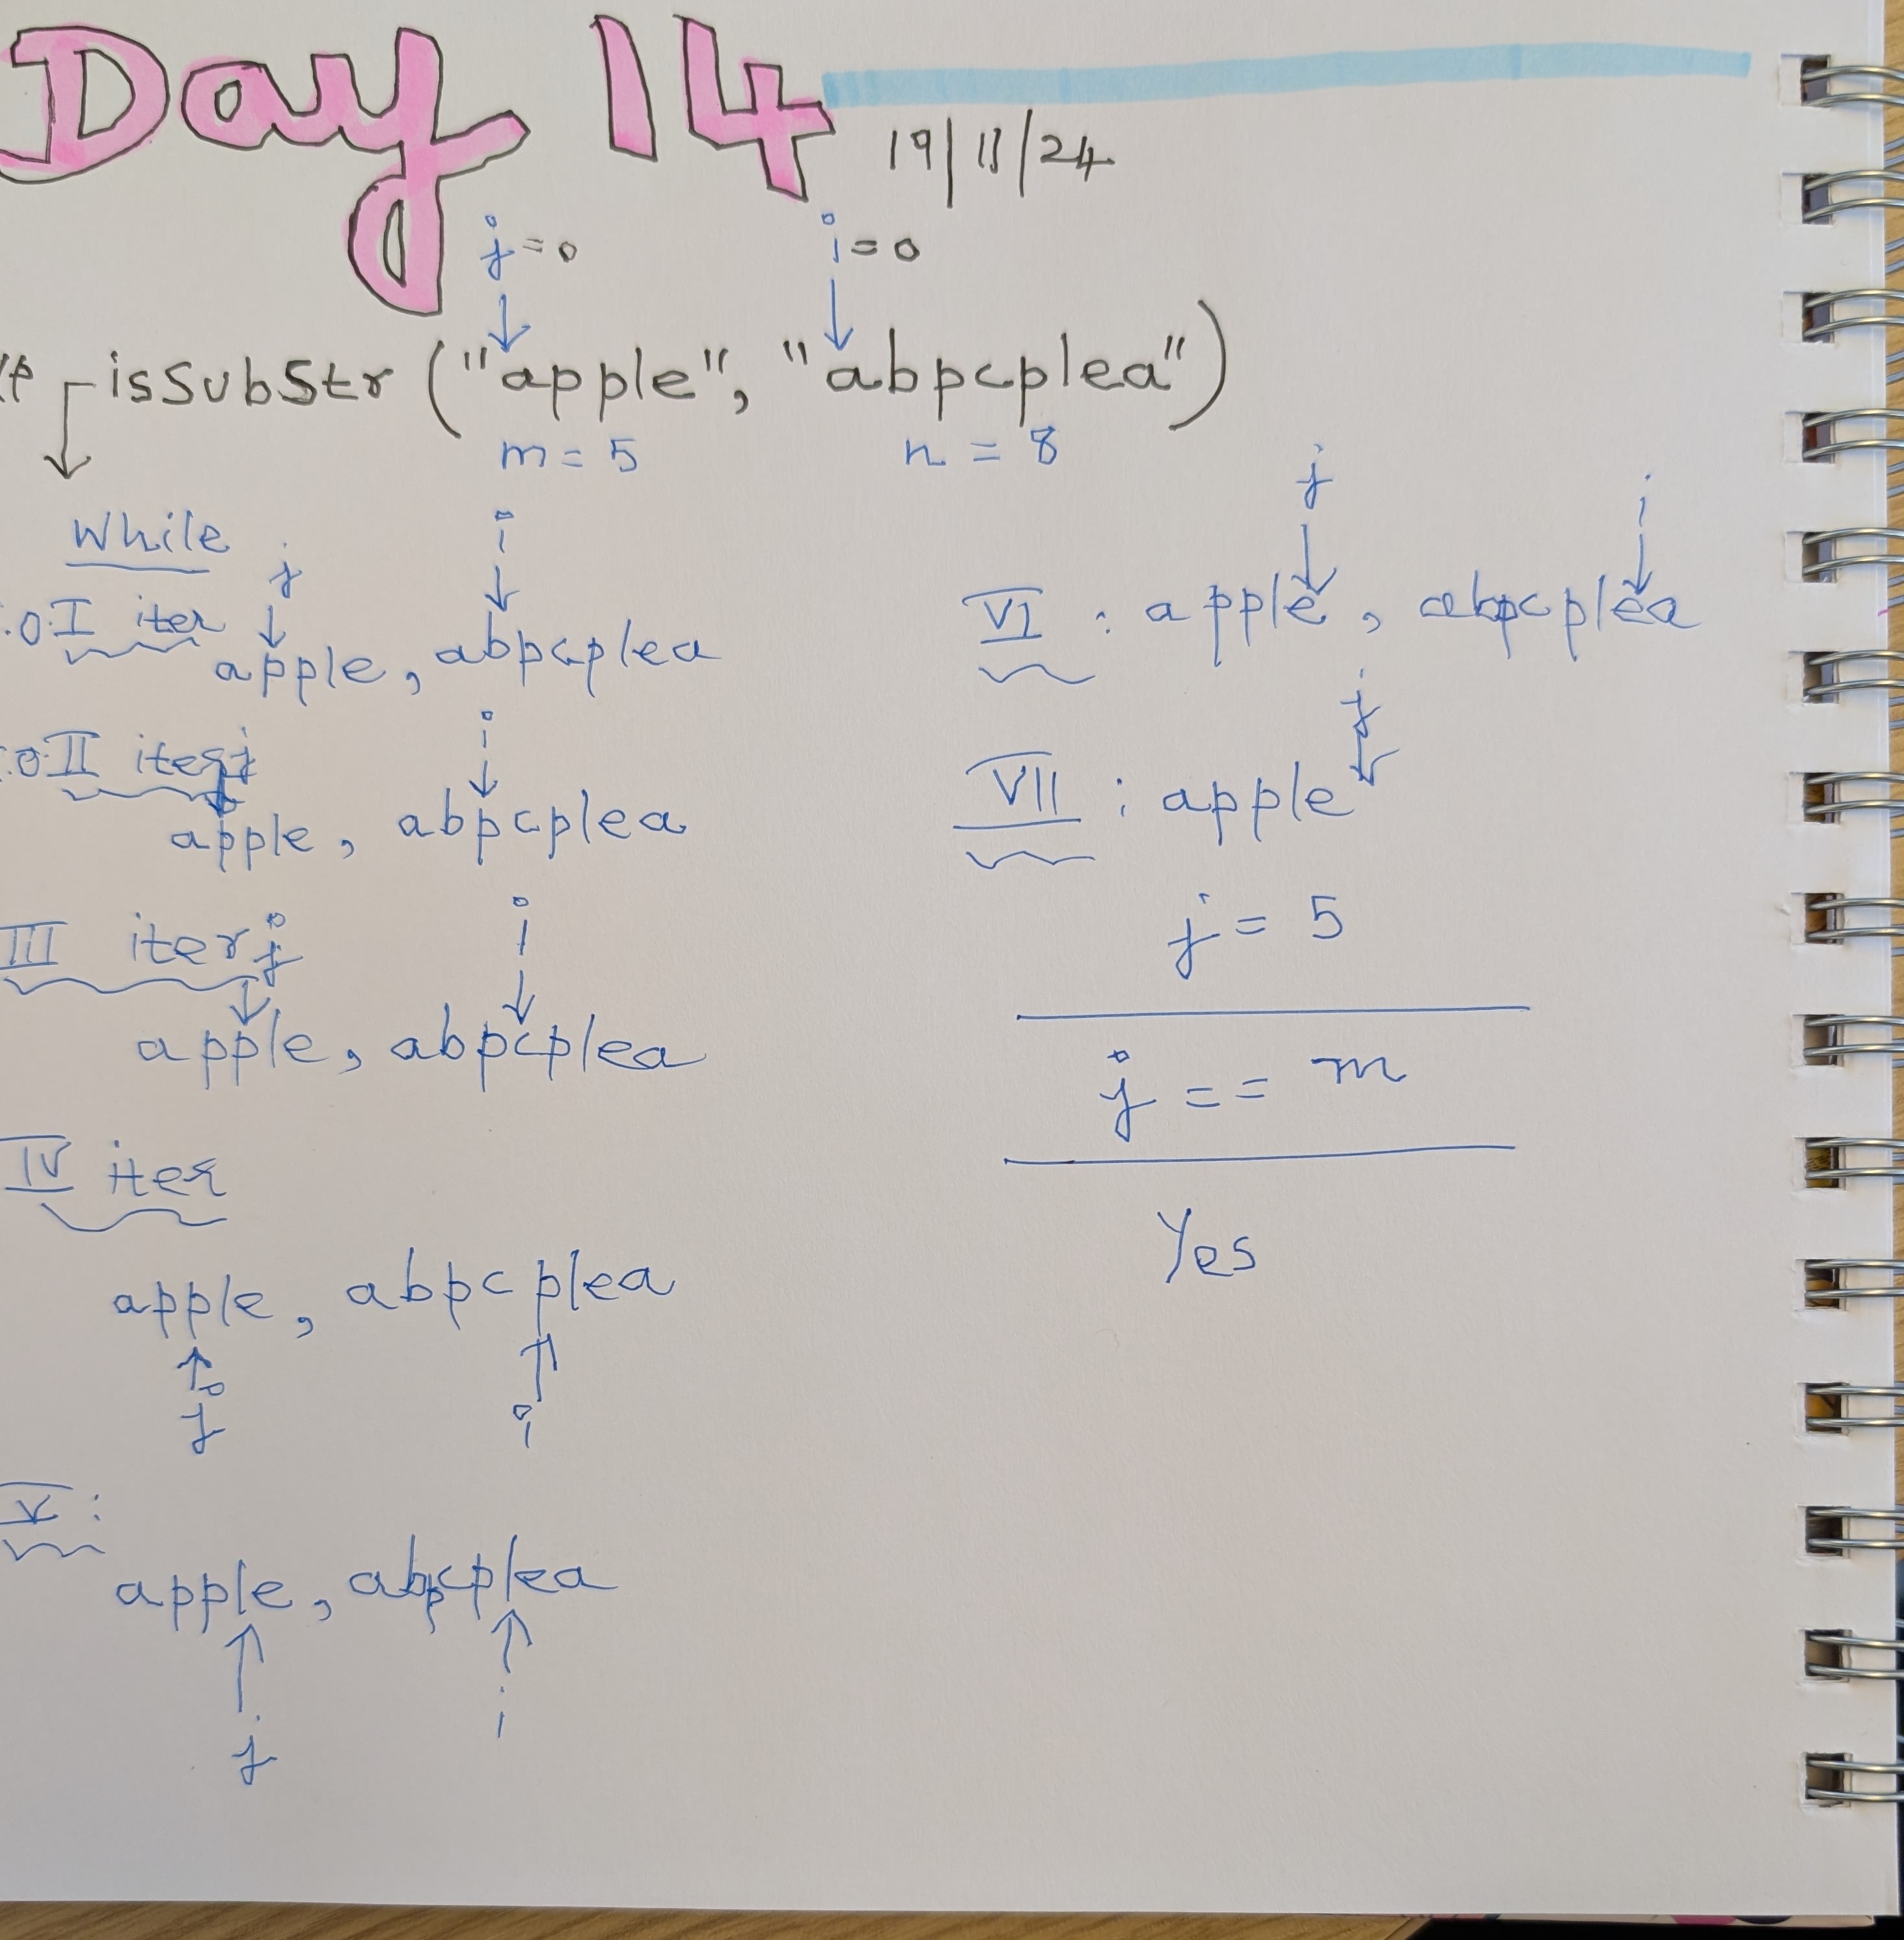 Day 14
19/11/24
j = 0 i = 0
isSubStr ("apple", "abpcplea")
m = 5 n = 8
While
j i
I iter
apple, abpcplea
i
II iter j
apple, abpcplea
i
III iter j
apple, abpcplea
IV iter
apple, abpcplea
j i
V :
apple, abpcplea
i
j
j i
VI : apple, abpcplea
j
VII : apple
j = 5
j == m
Yes